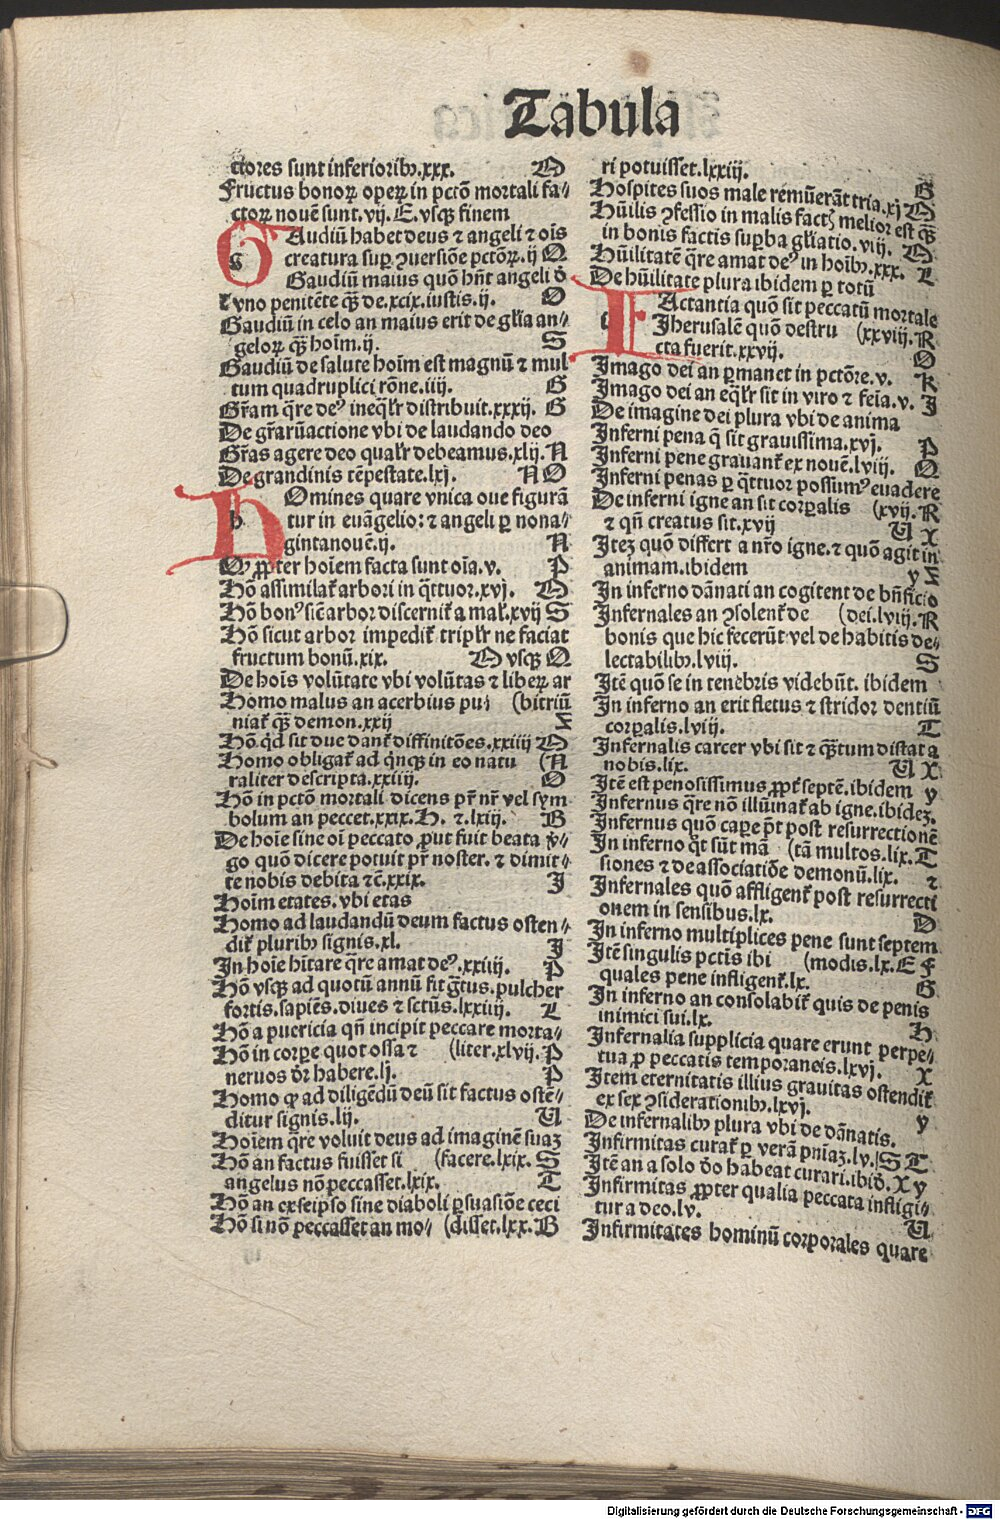 Tabula
ctores sunt inferioribꝫ.xxx. O
Fructus bonoꝝ opeꝝ in pctō mortali fa⸗
ctoꝝ nouē sunt. vij. E. vsqꝫ finem
GAudiū habet deus ⁊ angeli ⁊ oīs
creatura suꝑ ↄuersiōe pctōꝝ. ij Q
Gaudiū maius quō hn̄t angeli ď
vno penitēte qꝫ̄ de.xcix.iustis.ij. O
Gaudiū in celo an maius erit de gl̄ia an⸗
geloꝝ qꝫ̄ hoīm.ij. S
Gaudiū de salute hoīm est magnū ⁊ mul
tum quadruplici rōne.iiij. G
Gr̄am q̄re deꝰ ineq̄lr̄ distribuit.xxxij. G
De gr̄arūactione vbi de laudando deo
Gr̄as agere deo qualr̄ debeamus.xlij. N
De grandinis tēpestate.lxj. N O
HOmines quare vnica oue figurā
tur in euāgelio: ⁊ angeli ꝑ nona⸗
gintanouē.ij. N
Qꝫ ꝓpter hoīem facta sunt oīa.v. P
Hō assimilat᷑ arbori in q̄ttuor.xvj. O
Hō bonꝰ sic̄ arbor discernit᷑ a mal̄.xvij S
Hō sicut arbor impedit᷑ triplr̄ ne faciat
fructum bonū.xix. O vsqꝫ Q
De hoīs volūtate vbi volūtas ⁊ libeꝝ ar
Homo malus an acerbius pu⸗ (bitriū
niat᷑ qꝫ̄ demon.xxij Z
Hō.q̇d sit due dant᷑ diffinitōes.xxiiij O
Homo obligat᷑ ad q̇nqꝫ in eo natu (N
raliter descripta.xxiiij. O
Hō in pctō mortali dicens pr̄ nr̄ vel sym
bolum an peccet.xxix.H. ⁊.lxiij. B
De hoīe sine oī peccato ꝓut fuit beata v̇⸗
go quō dicere potuit pr̄ noster. ⁊ dimit⸗
te nobis debita ⁊c̄.xxix. J
Hoīm etates. vbi etas
Homo ad laudandū deum factus osten⸗
dit᷑ pluribꝫ signis.xl. J
In hoīe hītare q̄re amat deꝰ.xxiiij. P
Hō vsqꝫ ad quotū annū fit ḡtus. pulcher
fortis. sapiēs. diues ⁊ sctūs.lxxiiij. L
Hō a puericia qn̄ incipit peccare morta⸗
Hō in corpe quot ossa ⁊ (liter.xlvij. P
neruos dr̄ habere.lj. P
Homo qꝫ ad diligēdū deū sit factus ostē⸗
ditur signis.lij. U
Hoīem q̄re voluit deus ad imaginē suaꝫ
Hō an factus fuisset si (facere.lxix. S
angelus nō peccasset.lxix. T
Hō an ex seipso sine diaboli ꝑsuasiōe ceci
Hō si nō peccasset an mo⸗ (disset.lxx. B
ri potuisset.lxxiij. G
Hospites suos male remūerāt tria.xj O
Hūilis ↄfessio in malis factꝭ melior est qꝫ̄
in bonis factis suꝑba gl̄iatio.viij. O
Hūilitatē q̄re amat deꝰ in hoībꝫ.xxx. L
De hūilitate plura ibidem ꝑ totū
IActantia quō sit peccatū mortale
Jherusalē quō destru (xxviij. R
cta fuerit.xxvij. O
Imago dei an ꝑmanet in pctōre.v. K
Imago dei an eq̄lr̄ sit in viro ⁊ feīa.v. J
De imagine dei plura vbi de anima
Inferni pena q̄ sit grauissima.xvj. P
Inferni pene grauant᷑ ex nouē.lviij. Q
Inferni penas ꝑ q̄ttuor possumꝰ euadere
De inferni igne an sit corꝑalis (xvij. R
⁊ qn̄ creatus sit.xvij U X
Iteꝫ quō differt a nr̄o igne. ⁊ quō agit in
animam.ibidem y Z
In inferno dānati an cogitent de bn̄ficio
Infernales an ↄsolent᷑ de (dei.lviij. R
bonis que hic fecerūt vel de habitis de⸗
lectabilibꝫ.lviij. S
Itē quō se in tenebris videbūt. ibidem
In inferno an erit fletus ⁊ stridor dentiū
corꝑalis.lviij. T
Infernalis carcer vbi sit ⁊ qꝫ̄tum distat a
nobis.lix. U X
Itē est penosissimus ꝓpt᷑ septē.ibidem y
Infernus q̄re nō illūinat᷑ ab igne.ibideꝫ.
Infernus quō caꝑe p̄t post resurrectionē
In inferno q̇t sūt mā (tā multos.lix. T
siones ⁊ de associatiōe demonū.lix. ⁊
Infernales quō affligent᷑ post resurrecti
onem in sensibus.lx. D
In inferno multiplices pene sunt septem
Itē singulis pctīs ibi (modis.lx. E F
quales pene infligent᷑.lx. G
In inferno an consolabit᷑ quis de penis
inimici sui.lx. H
Infernalia supplicia quare erunt perpe⸗
tua ꝓ peccatis temporaneis.lxvj. X
Item eternitatis illius grauitas ostendit᷑
ex sex ↄsiderationibꝫ.lxvj. y
De infernalibꝫ plura vbi de dānatis.
Infirmitas curat᷑ ꝑ verā pn̄iaꝫ.lv. S T
Itē an a solo d̄o habeat curari.ibid̄. X y
Infirmitas ꝓpter qualia peccata infligi⸗
tur a deo.lv. U
Infirmitates hominū corporales quare
Digitalisierung gefördert durch die Deutsche Forschungsgemeinschaft - DFG